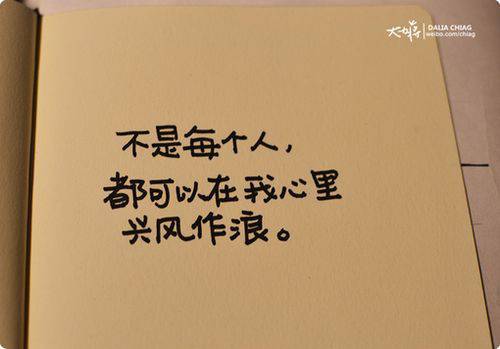 DALIA CHIAG
weibo.com/chiag
不是每个人，
都可以在我心里
兴风作浪。